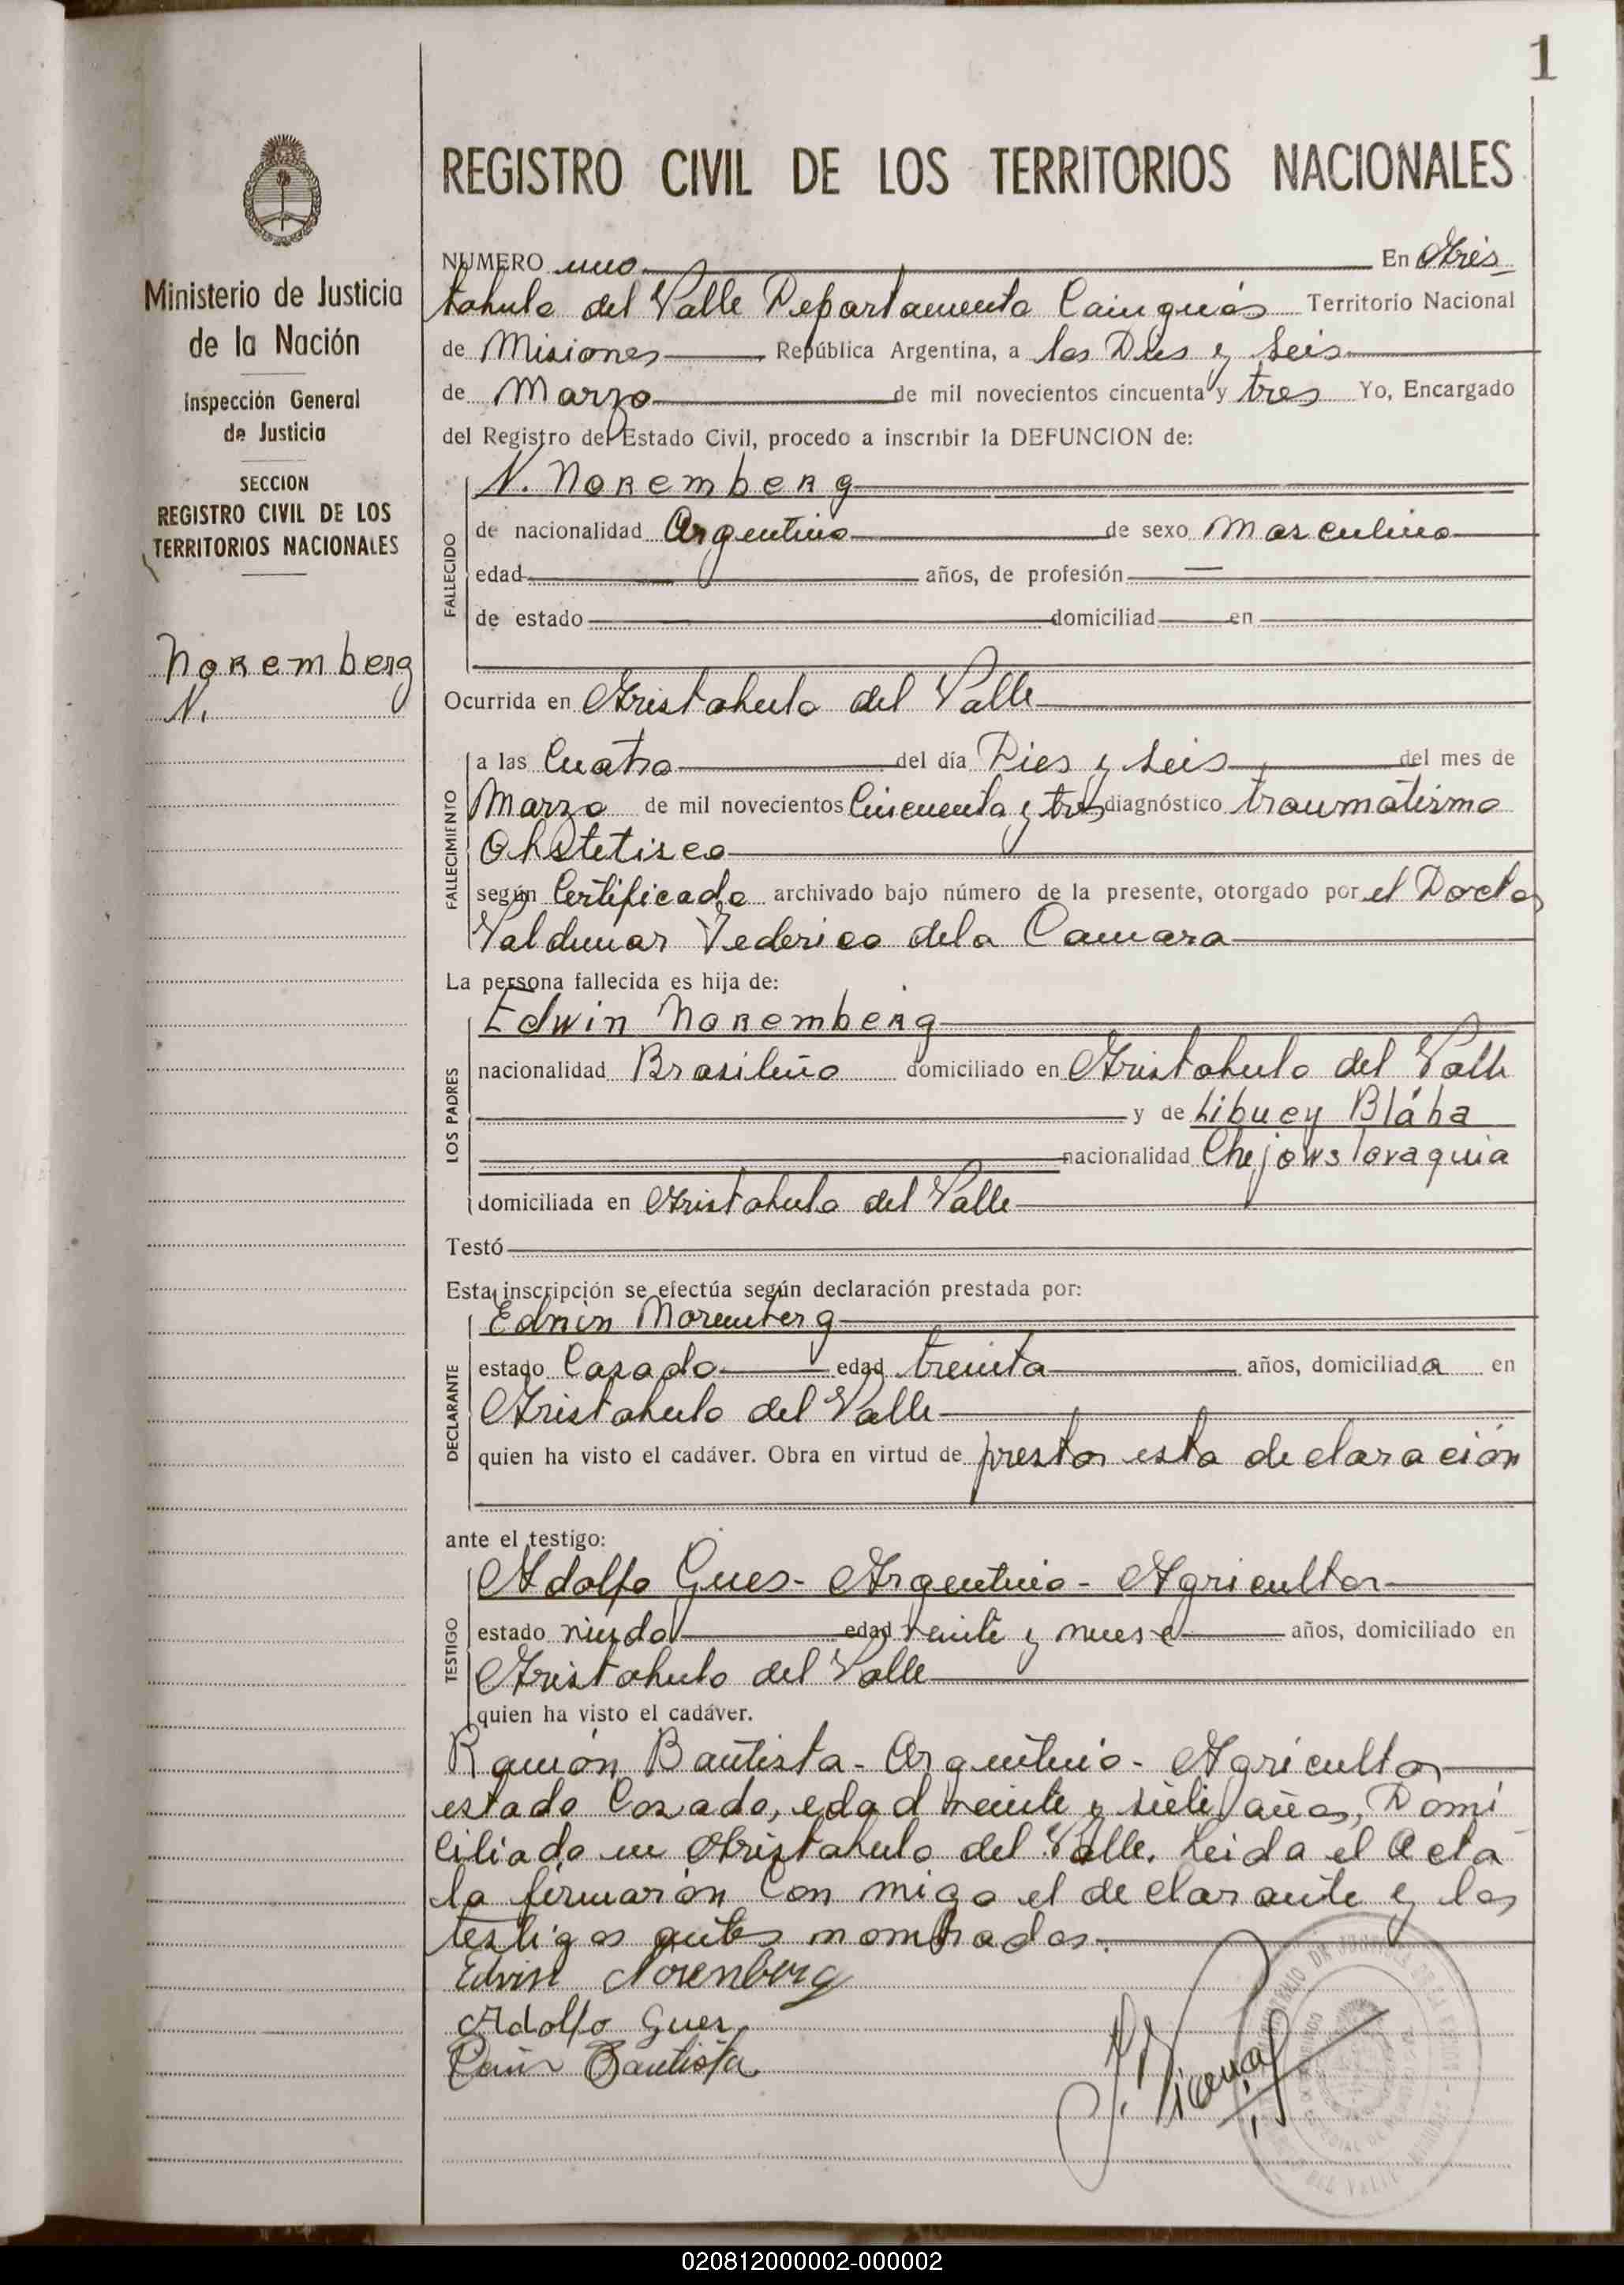 1
REGISTRO CIVIL DE LOS TERRITORIOS NACIONALES
Ministerio de Justicia
de la Nación
Inspección General
de Justicia
SECCION
REGISTRO CIVIL DE LOS
TERRITORIOS NACIONALES
Noremberg
N.
NUMERO uno En Aris
tobulo del Valle Departamento Cainguás Territorio Nacional
de Misiones República Argentina, a los Dies y Seis
de Marzo de mil novecientos cincuenta y tres Yo, Encargado
del Registro del Estado Civil, procedo a inscribir la DEFUNCION de:
FALLECIDO
N. Noremberg
de nacionalidad Argentino de sexo Masculino
edad años, de profesión —
de estado domiciliad en
Ocurrida en Aristobulo del Valle
FALLECIMIENTO
a las Cuatro del día Dies y seis del mes de
Marzo de mil novecientos Cincuenta y tres diagnóstico traumatismo
Obstetisco
según Certificado archivado bajo número de la presente, otorgado por el Doctor
Valdemar Federico dela Camara
La persona fallecida es hija de:
LOS PADRES
Edwin Noremberg
nacionalidad Brasileño domiciliado en Aristobulo del Valle
y de Libuey Bláha
nacionalidad Chejowslovaquia
domiciliada en Aristobulo del Valle
Testó
Esta inscripción se efectúa según declaración prestada por:
DECLARANTE
Edwin Noremberg
estado Casado edad treinta años, domiciliado en
Aristobulo del Valle
quien ha visto el cadáver. Obra en virtud de prestar esta declaración
ante el testigo:
TESTIGO
Adolfo Gues - Argentino - Agricultor
estado viudo edad veinte y nueve años, domiciliado en
Aristobulo del Valle
quien ha visto el cadáver.
Ramón Bautista - Argentino - Agricultor
estado Casado, edad veinte y siete años, Domi
ciliado en Aristobulo del Valle. Leida el Acta
la firmarón con migo el declarante y los
testigos antes nombrados.
Edwin Norenberg
Adolfo Gues
Bautista
020812000002-000002